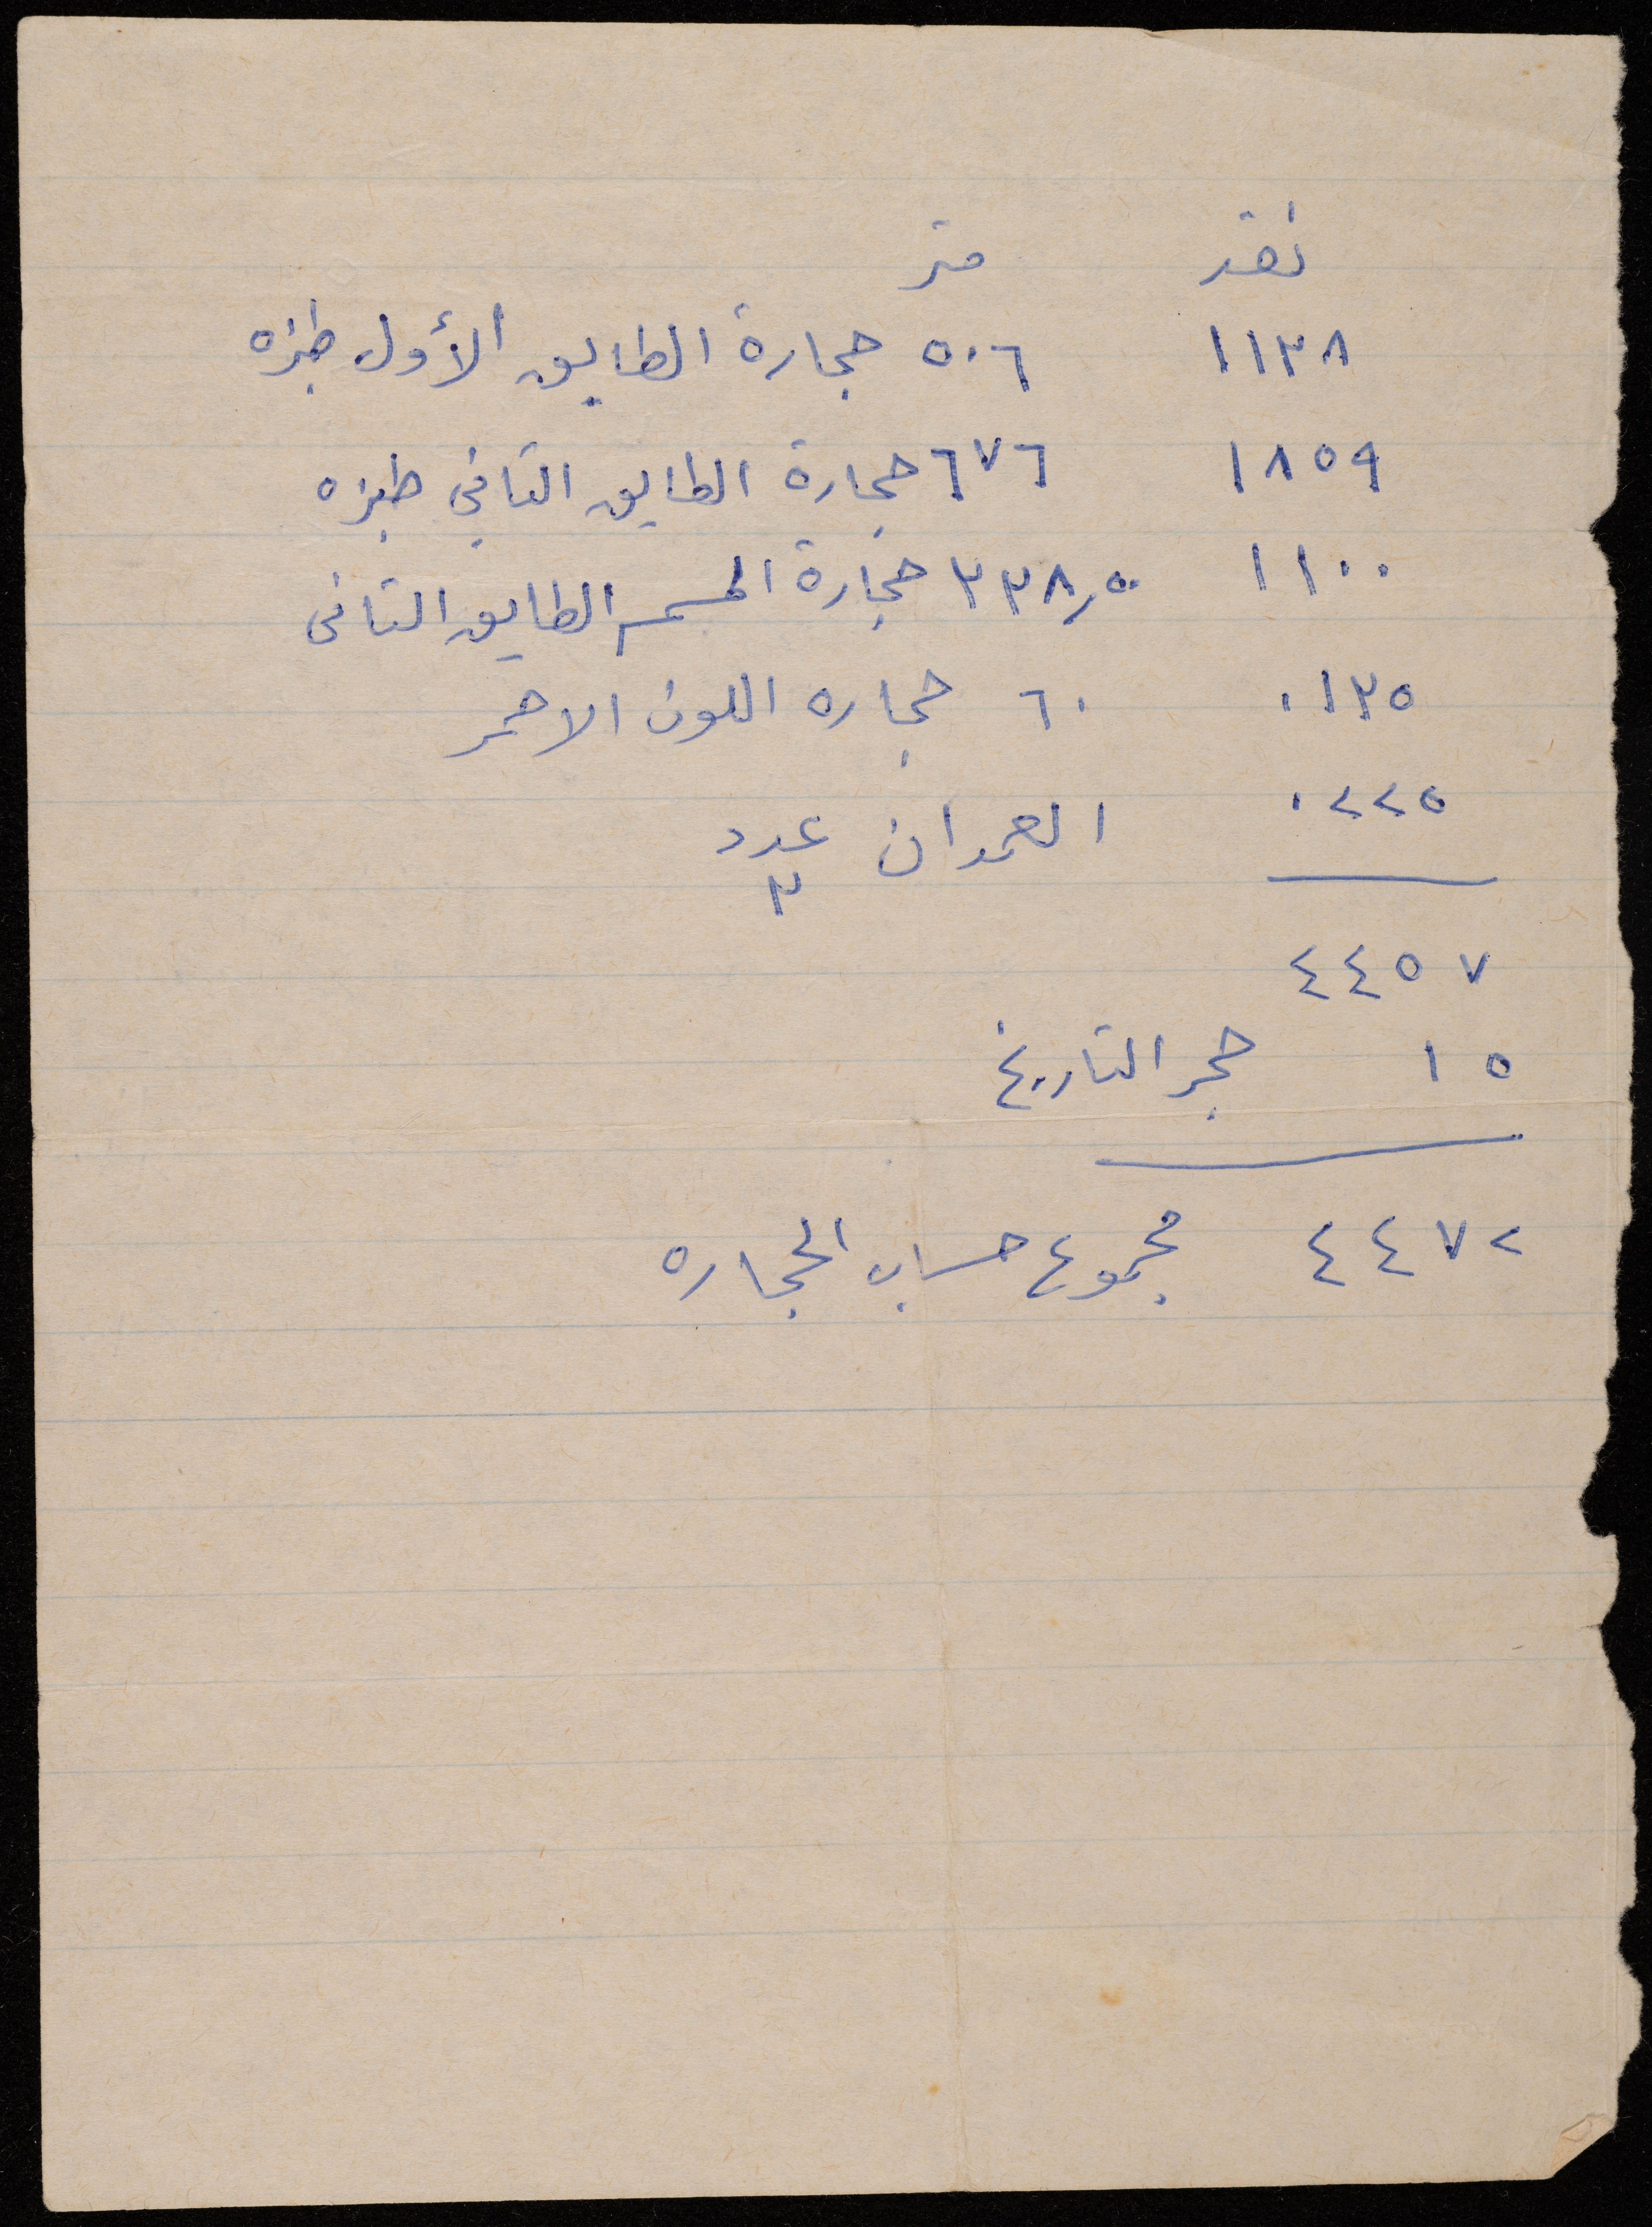 نقد متر
١١٣٨ ٥٠٦ حجارة الطابق الأول طبزه
١٨٥٩ ٦٧٦ حجارة الطابق الثاني طبزه
١١٠٠ ٣٣٨٫٥٠ حجارة الطابق الثاني
٠١٣٥ ٦٠ حجاره اللون الاحمر
٠٢٢٥ العمدان عدد ٣
٤٤٥٧
١٥ حجر التاريخ
٤٤٧٢ مجموع حساب الحجاره